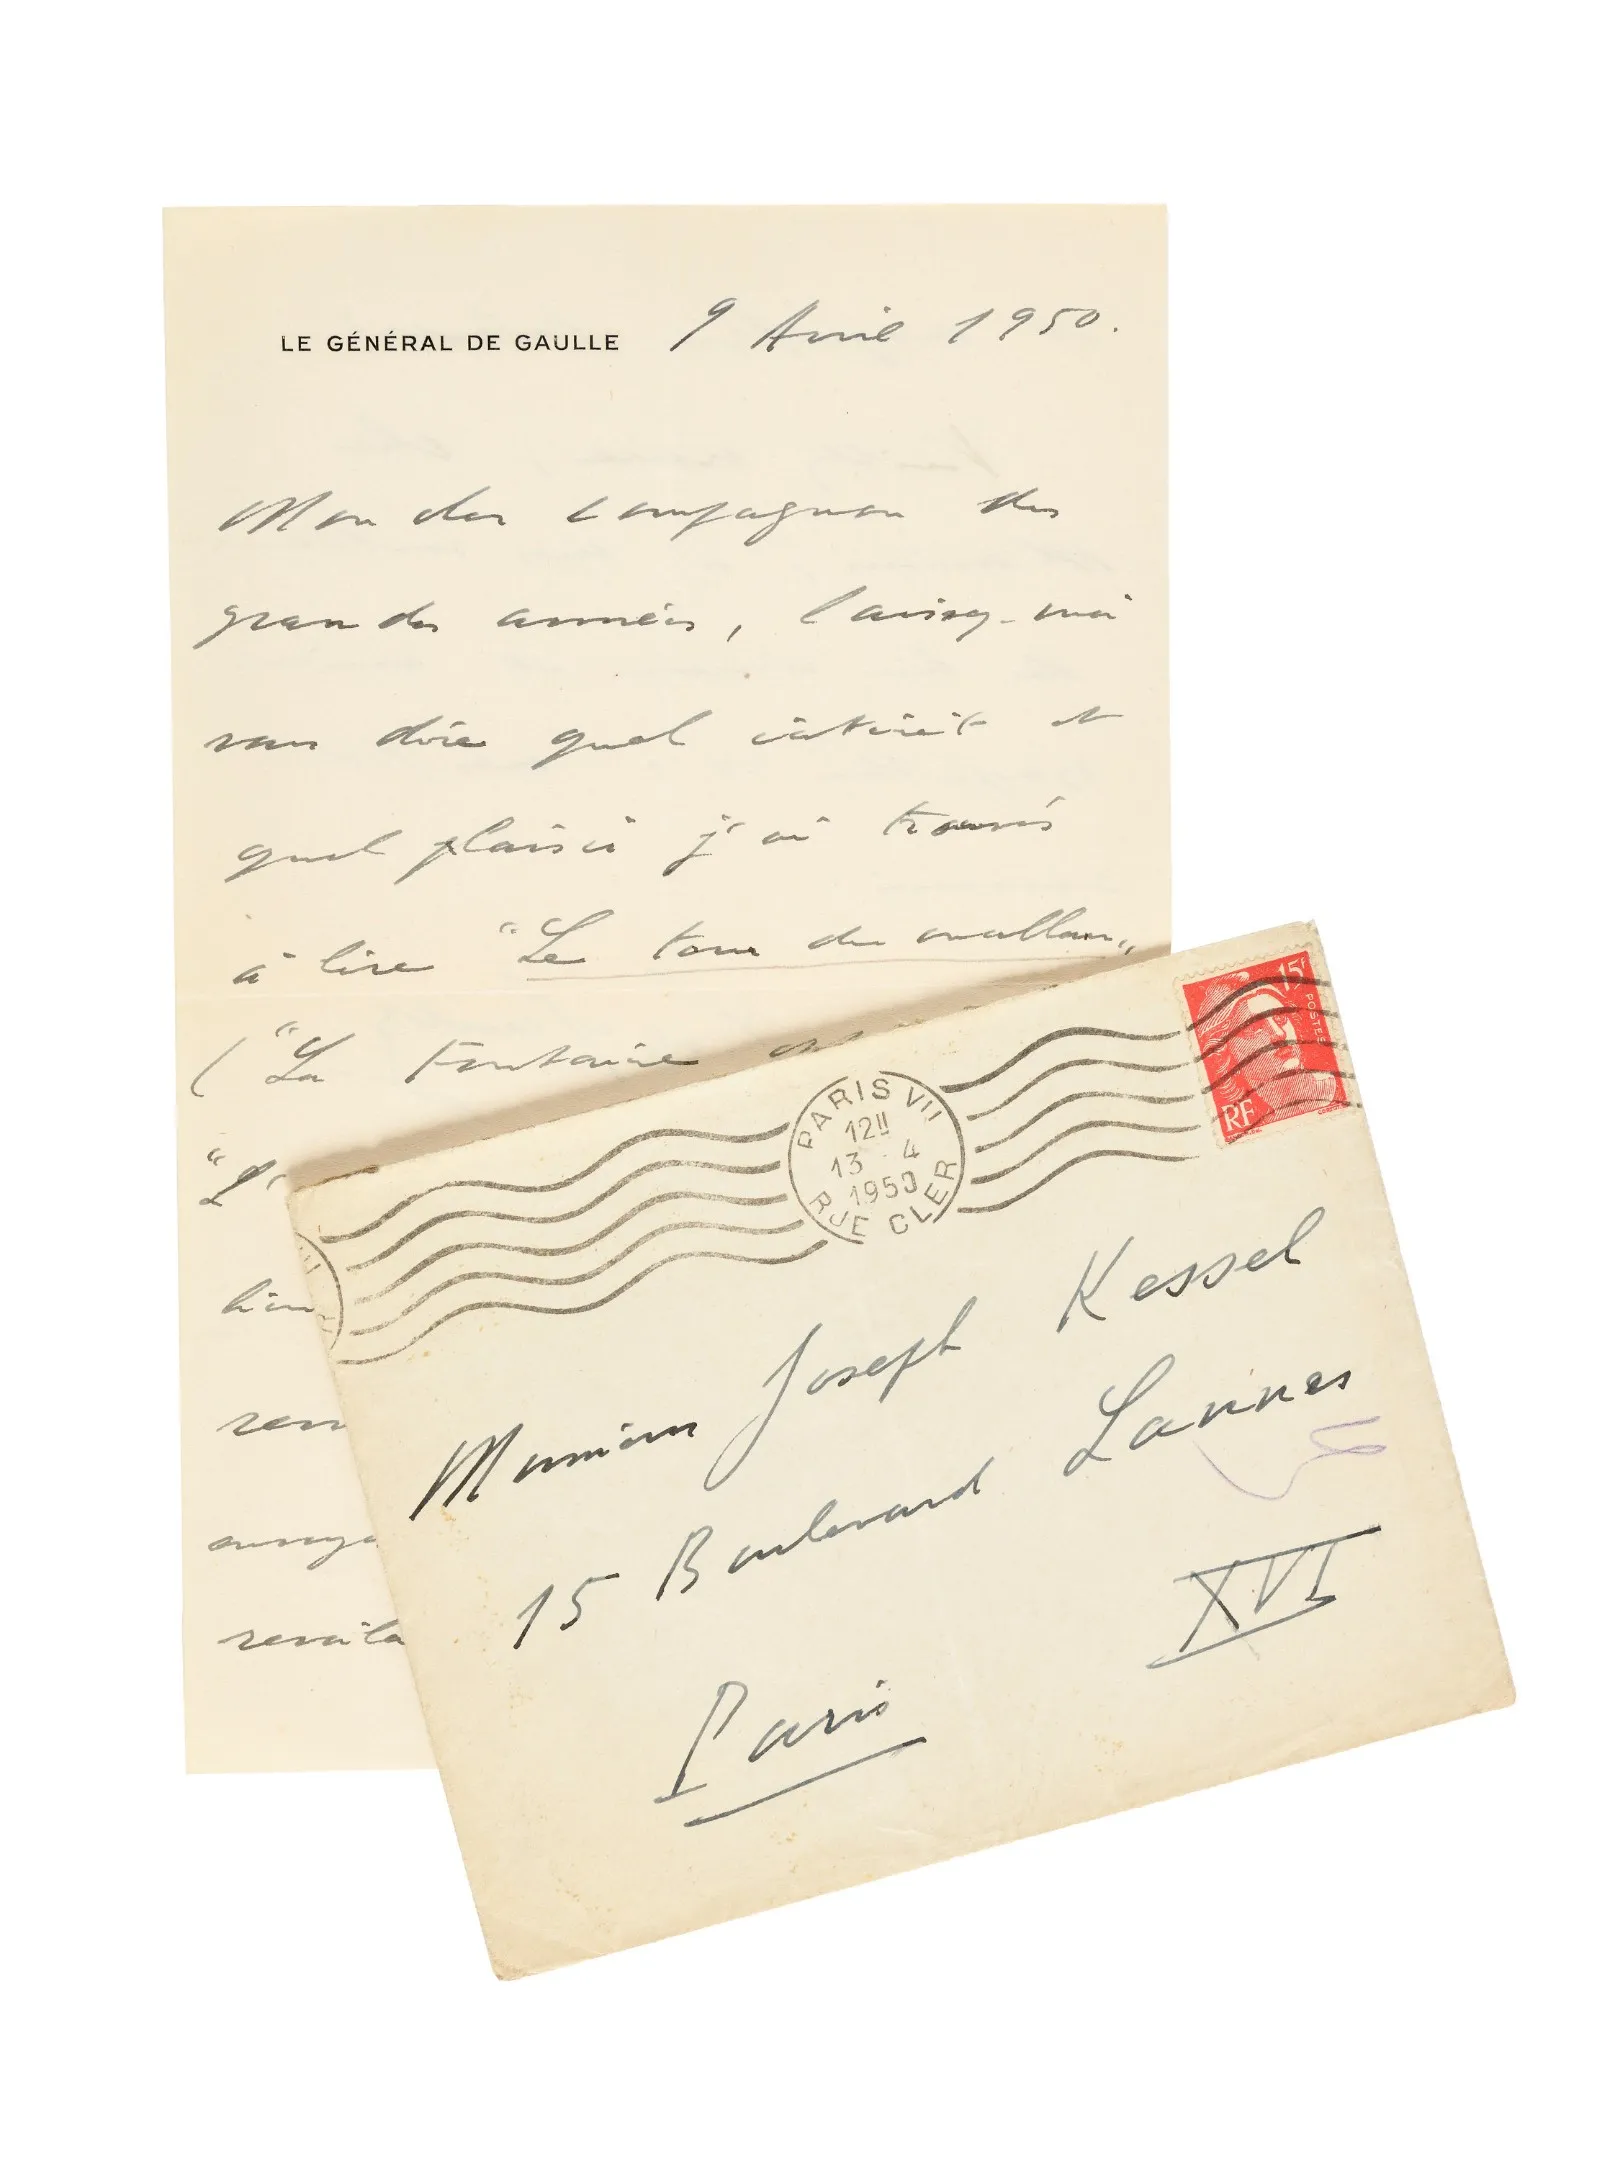 LE GÉNÉRAL DE GAULLE 9 Avril 1950.
Mon cher compagnon des
grandes années, laissez-moi
vous dire quel intérêt et
quel plaisir j'ai trouvés
à lire "Le tour du malheur"
("La Fontaine
"L'
bien
15F
POSTES
RF
PARIS VII
12H
13 - 4
1950
RUE CLER
Monsieur Joseph Kessel
15 Boulevard Lannes
Paris XVI